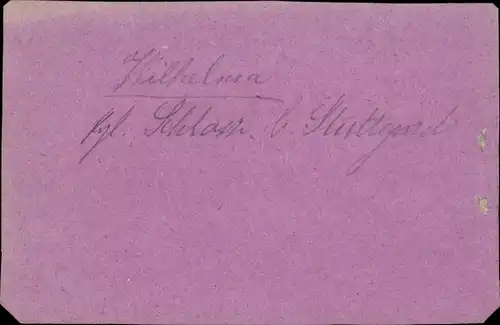 Wilhelma
kgl. Schloss. b. Stuttgard